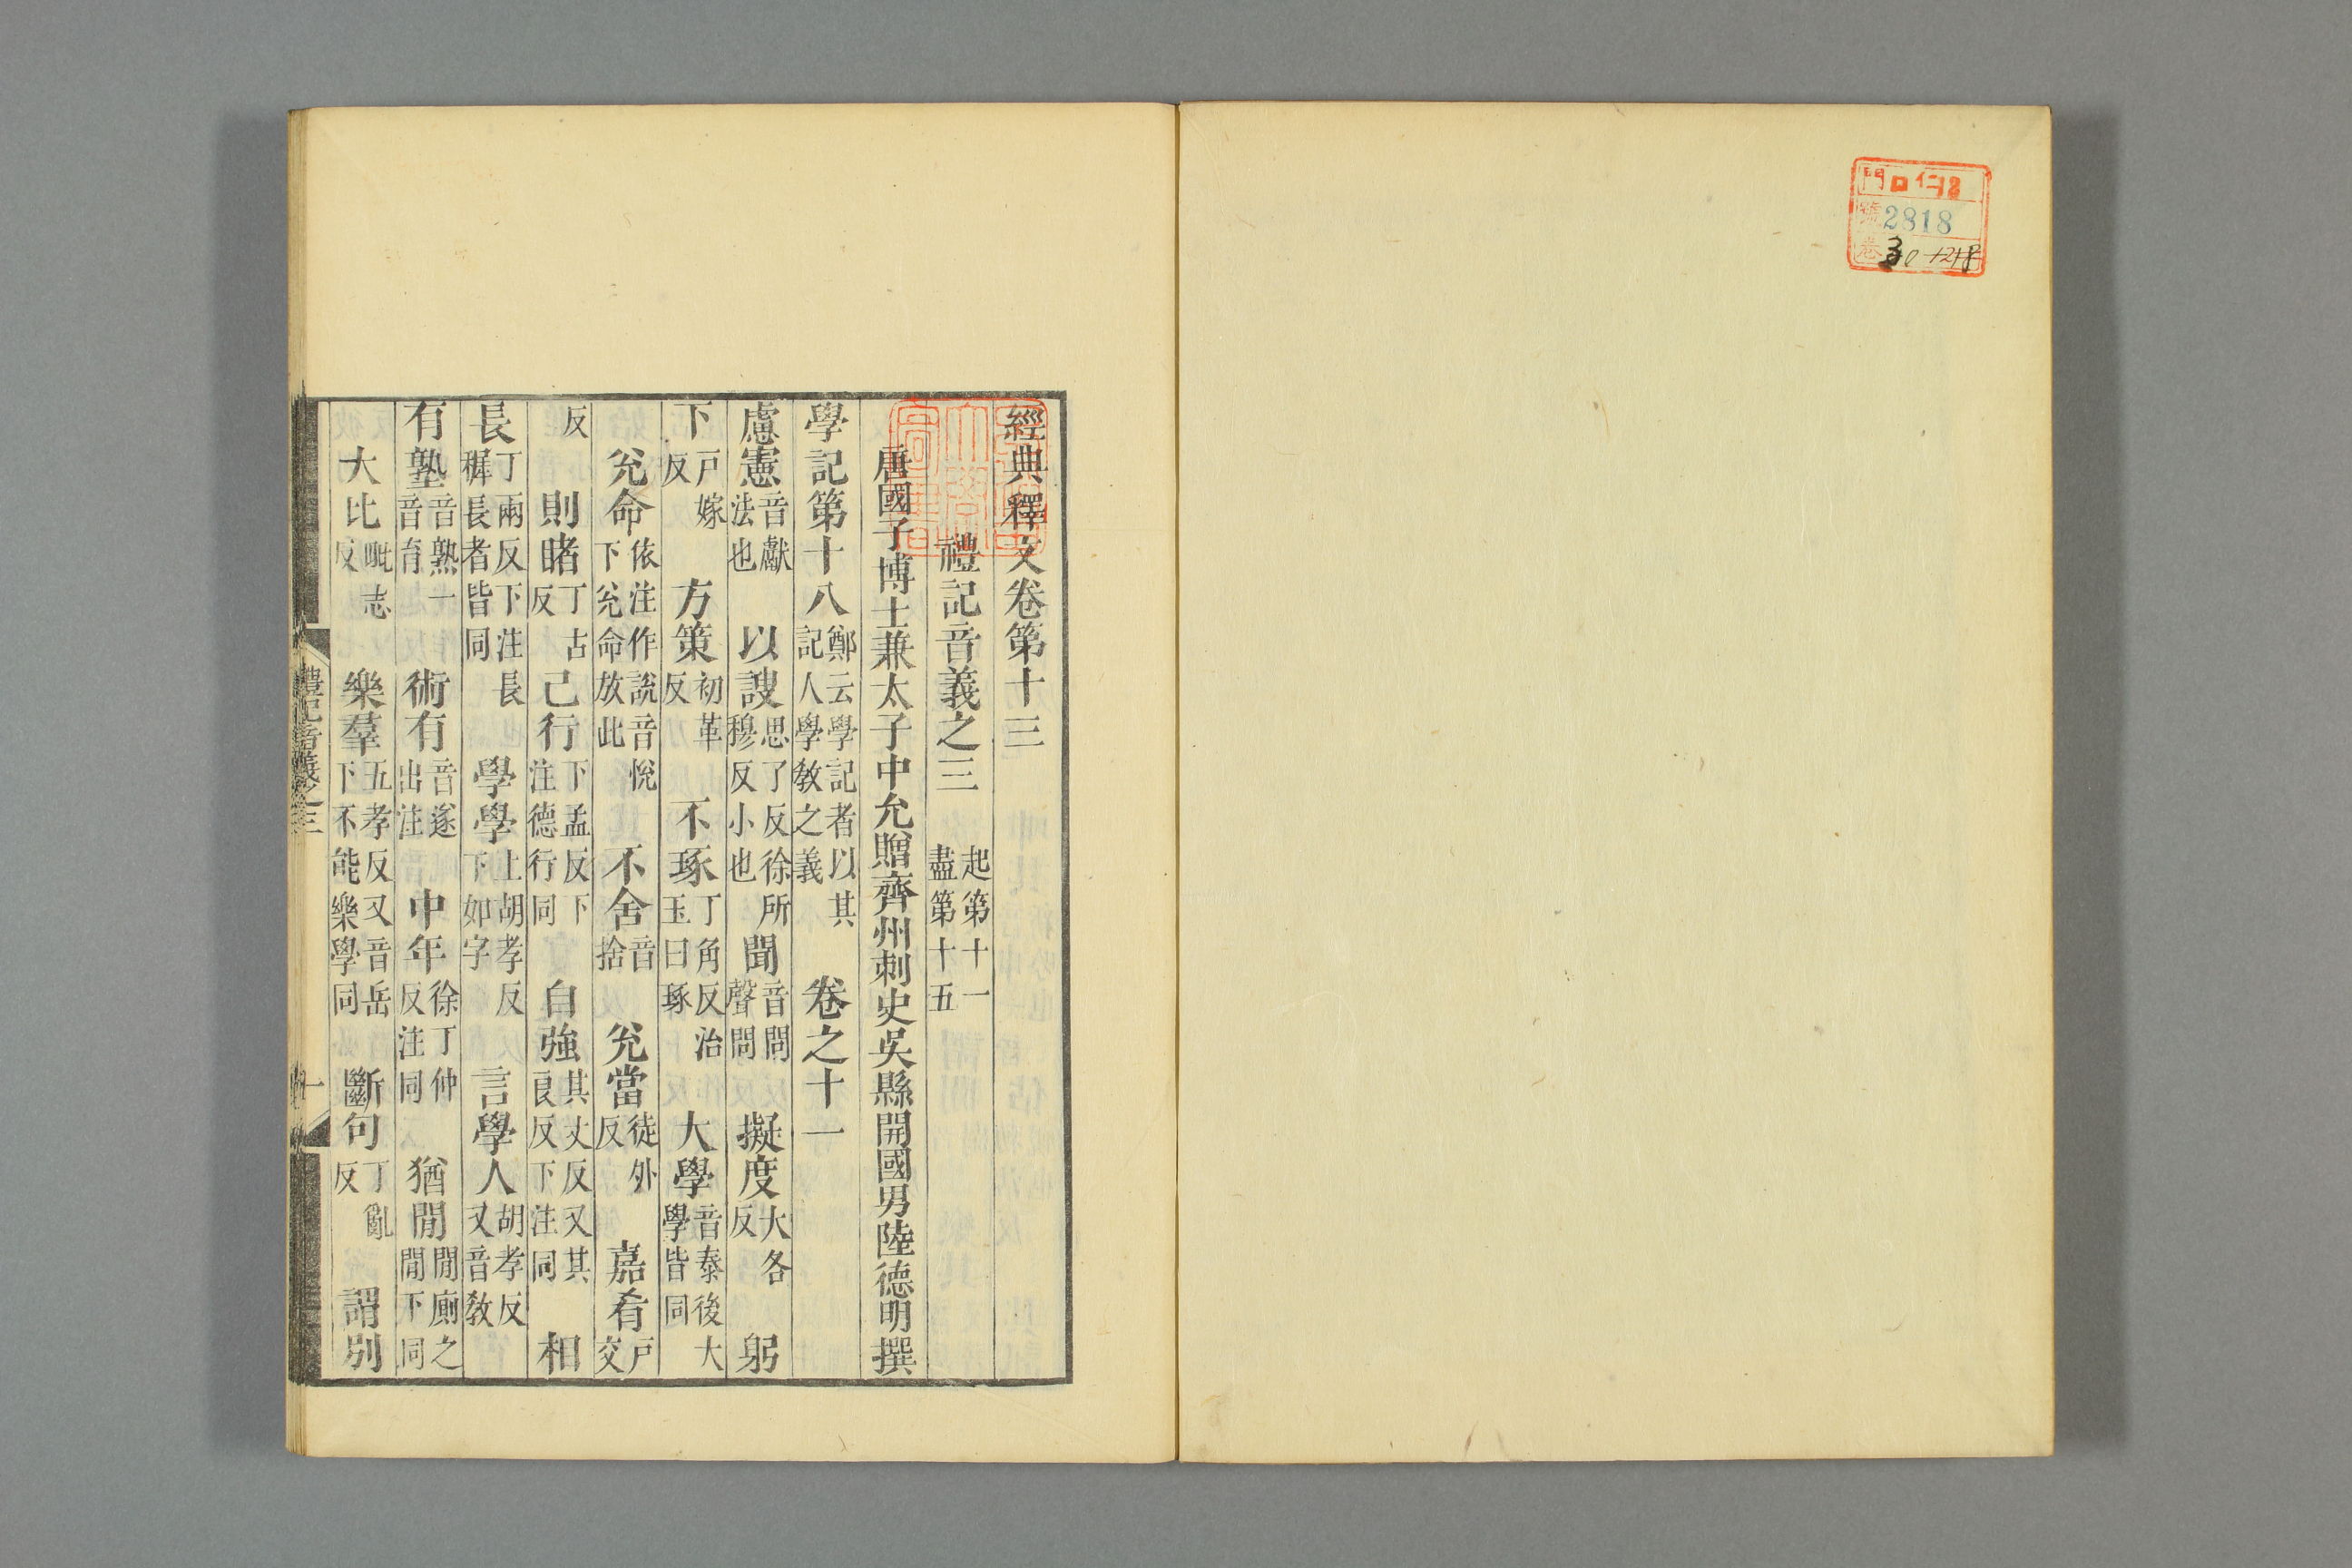 門 ロ仁12
號 2818
卷 30
經典釋文卷第十三
禮記音義之三 起第十一盡第十五
唐國子博士兼太子中允贈齊州刺史吳縣開國男陸德明撰
學記第十八 鄭云學記者以其記人學教之義 卷之十一
慮憲 音獻法也 以謏 思了反徐所穆反小也 聞 音問聲問 擬度 大各反 躬
下 戸嫁反 方策 初革反 不琢 丁角反治玉曰琢 大學 音泰後大學皆同
兊命 依注作說音悅下兊命放此 不舍 音捨 兊當 徒外反 嘉肴 戸交
反 則睹 丁古反 己行 下孟反下注德行同 自強 其丈反又其良反下注同 相
長 丁兩反下注長穉長者皆同 學學 上胡孝反下如字 言學人 胡孝反又音教
有塾 音熟一音育 術有 音遂出注 中年 徐丁仲反注同 猶閒 閒廁之閒下同
大比 毗志反 樂羣 五孝反又音岳下不能樂學同 斷句 丁亂反 謂別
禮記音義之三 一